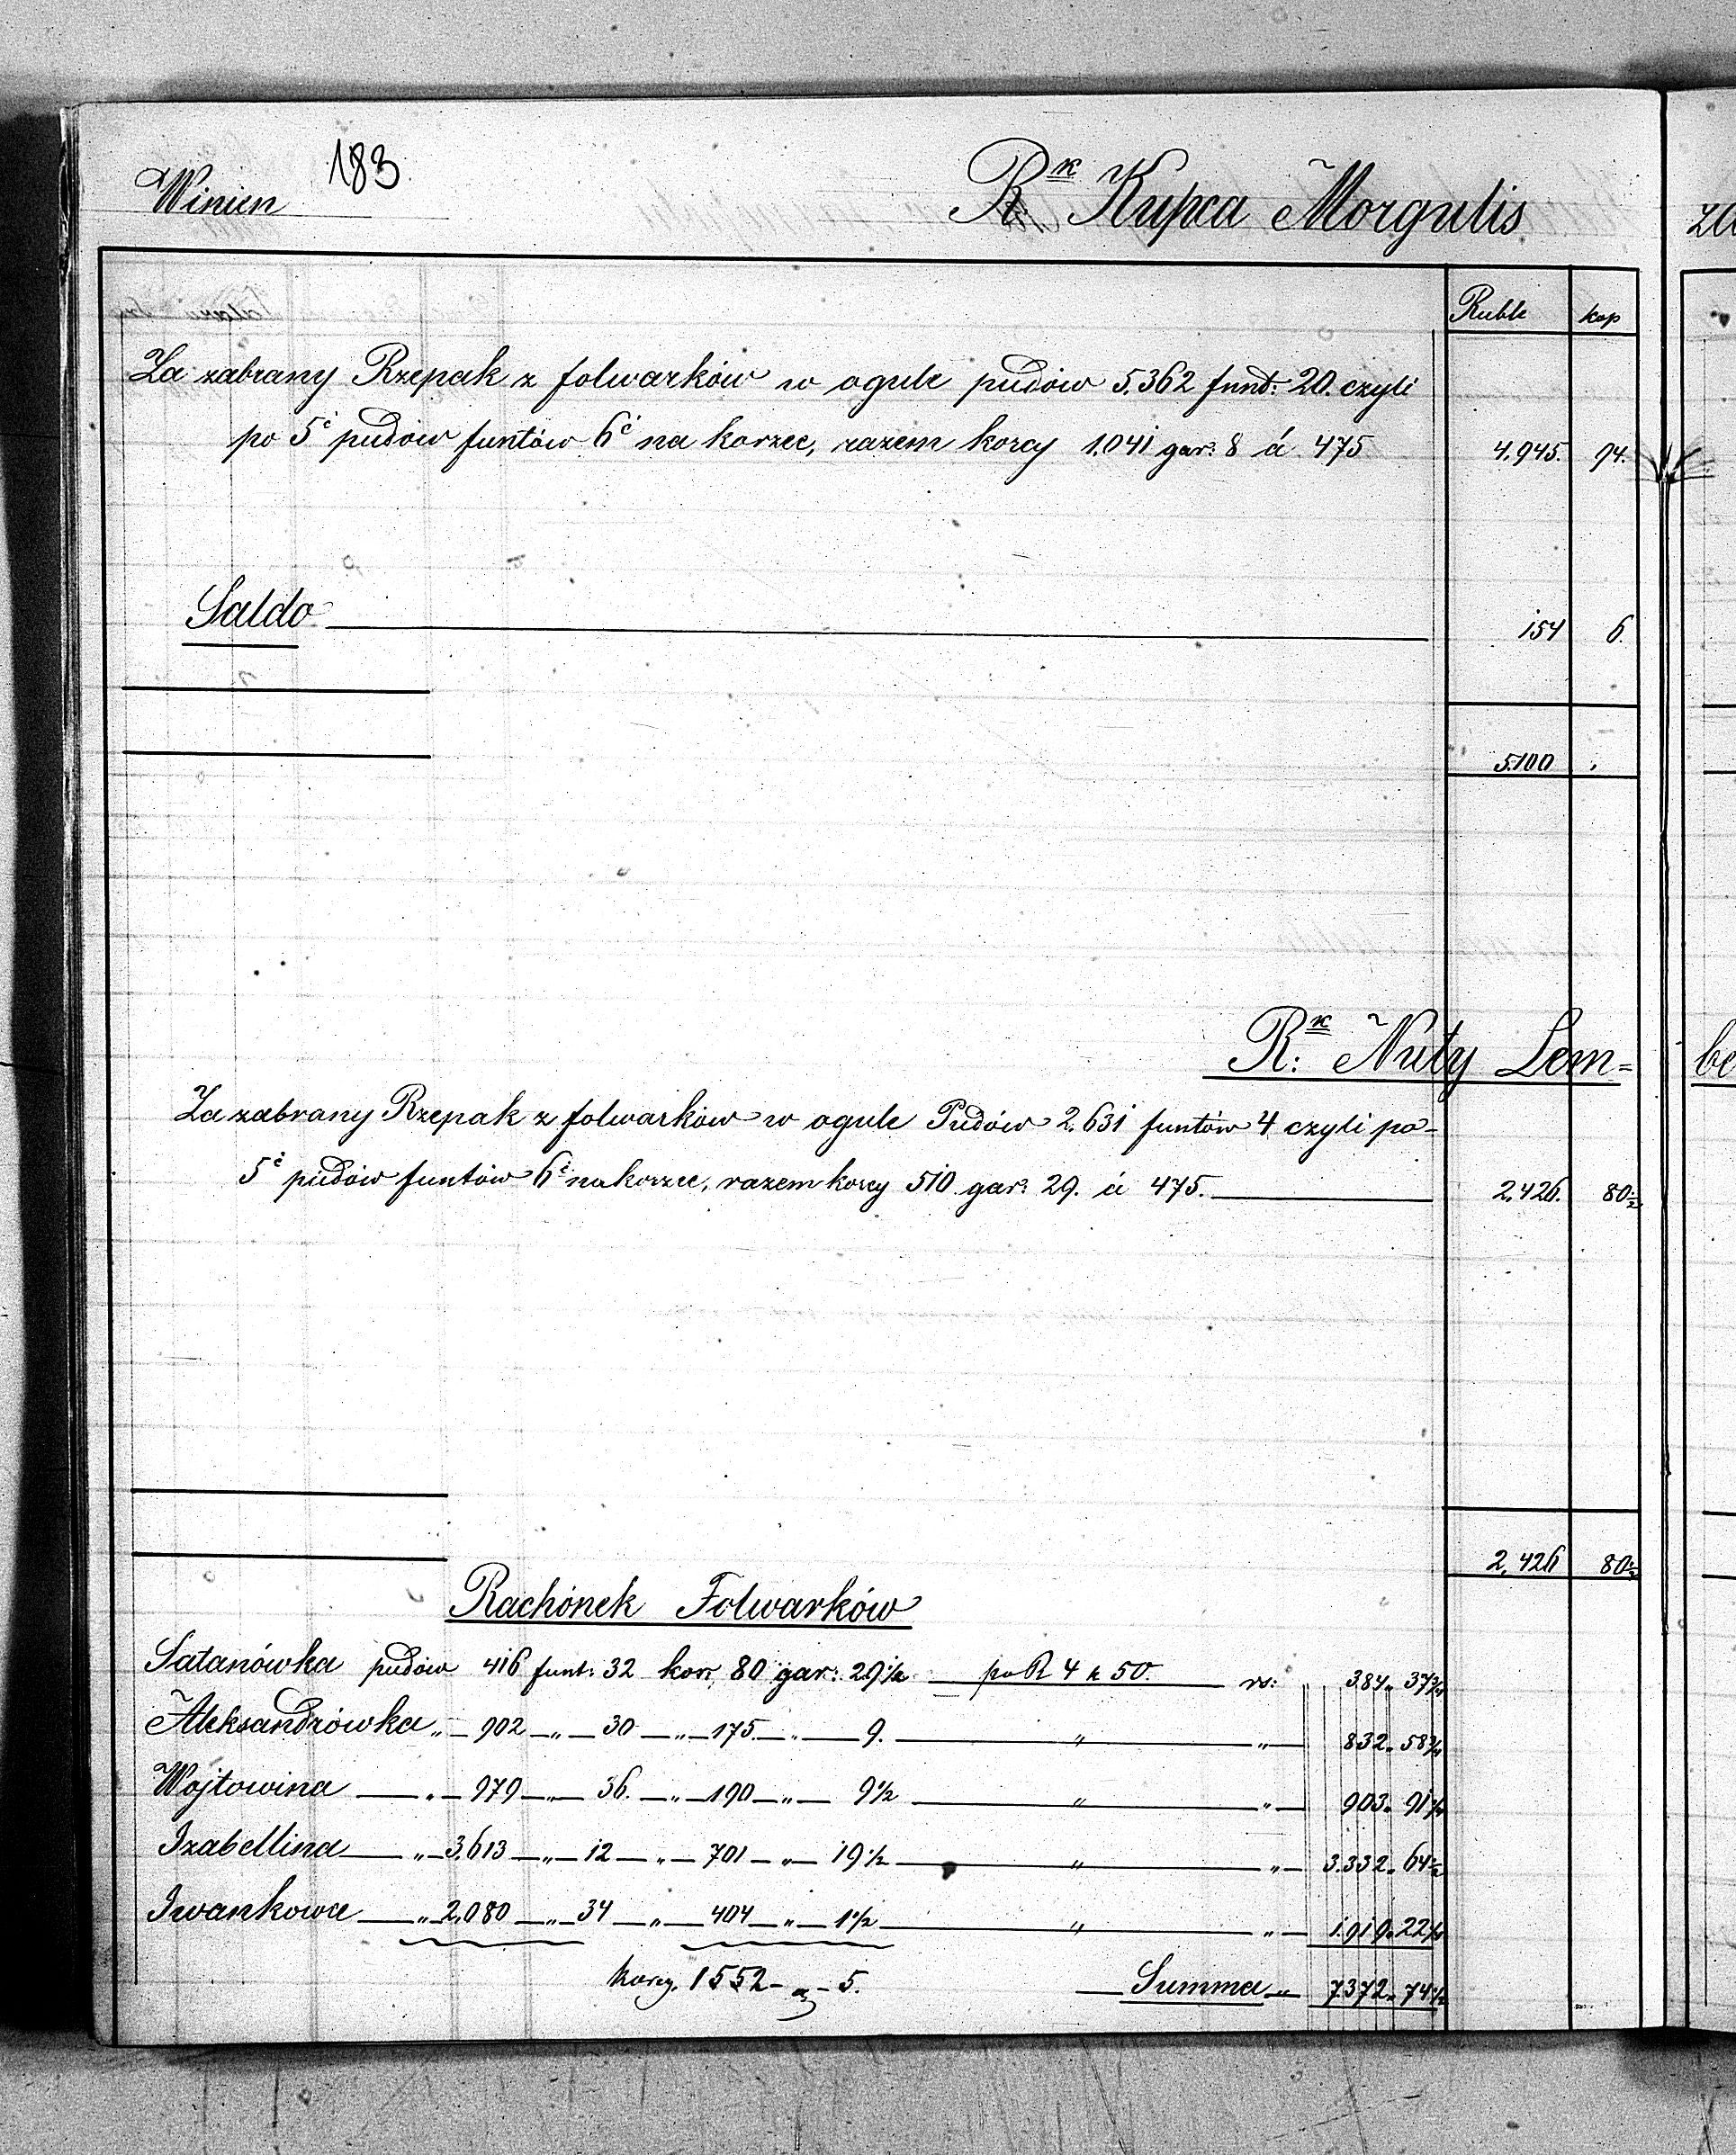 Winien 183 Rk Kupca Morgulis
Ruble kop
Za zabrany Rzepak z folwarków w ogule pudów 5.362 funt: 20. czyli
po 5ć pudów funtów 6ć na korzec, razem korcy 1.041 gar: 8 á 475 4.945. 94.
Saldo 154 6.
5.100 "
R:k Nuty Lem=
Za zabrany Rzepak z folwarków w ogule Pudów 2.631 funtów 4 czyli po-
5ć pudów funtów 6ć na korzec, razem korcy 510 gar: 29. á 475. 2.426. 80½
2.426 80½
Rachónek Folwarków
Satanówka pudów 416 funt: 32 kor: 80 gar: 29½ po R 4 k 50. rs: 384 " 37¾
Aleksandrówka " 902 " 30 " 175 " 9. " " 832 " 58¾
Wojtowina " 979 " 36. " 190 " 9½ " " 903 " 91¼
Izabellina " 3.613 " 12 " 701 " 19½ " " 3.332 " 64½
Iwankowce " 2.080 " 34 " 404 " 1½ " " 1.919 " 22¼
korcy. 1552 - g - 5. Summa " 7372 " 74½